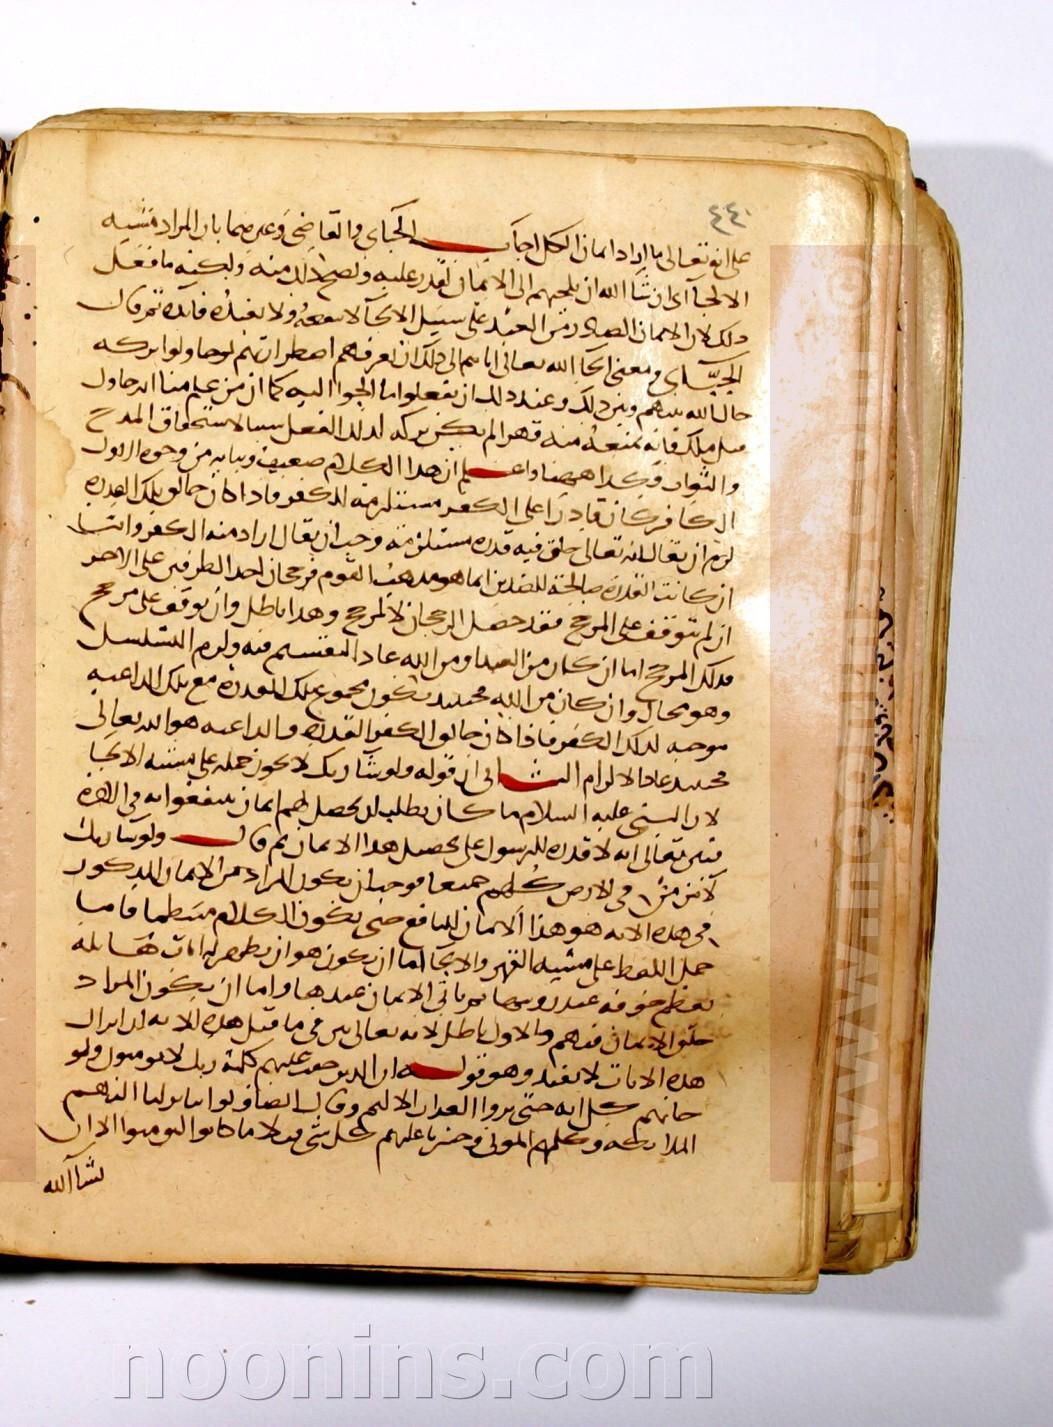 ٤٤٠
على انه تعالى ما اراد ايمان الكل اجاب الجباى والقاضى وغيرهما بان المراد مشيه
الالجآ اى ان شآ الله ان يلجيهم الى الايمان لقدر عليه ولصح ذلك منه ولكنه ما فعل
ذلك لان الايمان الصادر من العبد على سبيل الالجآ لا ينفعه ولا يفيده فايده ثم قال
الجبّاى ومعنى الجآ الله تعالى اياهم الى ذلك ان يعرفهم اضطرارا انهم لو حاولوا تركه
حال الله بينهم وبين ذلك وعند ذلك لا بد ان يفعلوا ما الجوا اليه كما ان من علم منا انه حاول
قتل ملك فانه يمنعه منه قهرا لم يكن تركه لذلك الفعل سببا لاستحقاق المدح
والثواب فكذا ههنا واعلم ان هذا الكلام ضعيف وبيانه من وجوه الاول
الكافر كان قادرا على الكفر مستلزمة للكفر فاذا كان خالق تلك القدره
لزم ان يقال انه تعالى خلق فيه قدره مستلزمة وجب ان يقال اراد منه الكفر واما
ان كانت القدرة صالحة للضدين كما هو مذهب القوم فرجحان احد الطرفين على الاخر
ان لم يتوقف على المرجح فقد حصل الرجحان لا لمرجح وهذا باطل وان توقف على مرجح
فذلك المرجح اما ان كان من العبد او من الله عاد التقسيم فيه ولزم التسلسل
وهو محال وان كان من الله فحينئذ يكون مجموع تلك القدرة مع تلك الداعيه
موجبه لذلك الكفر فاذا كان خالق الكفر القدرة والداعيه هو الله تعالى
فحينئذ عاد الالزام الثانى ان قوله ولو شآ ربك لا يجوز حمله على مشيه الالجا
لان النبى عليه السلام ما كان يطلب ان يحصل لهم ايمان ينتفعوا به فى الاخره
فبين تعالى انه لا قدرة للرسول على تحصيل هذا الايمان ثم قال ولو شآ ربك
لآمن من فى الارض كلهم جميعا فوجب ان يكون المراد من الايمان المذكور
فى هذه الايه هو هذا الايمان النافع حتى يكون الكلام منتظما فاما
حمل اللفظ على مشيه القهر والالجآ اما ان يكون هو ان يظهر له ايات هايله
يعظم خوفه عند رويتها ثم ياتى الايمان عندها واما ان يكون المراد
خلق الايمان فيهم والاول باطل لانه تعالى بين فى ما قبل هذه الايه ان انزال
هذه الايات لا يفيد وهو قوله ان الذين حقت عليهم كلمة ربك لا يومنون ولو
جاتهم كل ايه حتى يروا العذاب الاليم وقال ايضا ولو اننا نزلنا اليهم
الملايكه وكلمهم الموتى وحشرنا عليهم كل شى قبلا ما كانوا ليومنوا الا ان
يشآ الله
www.noonins.com
noonins.com